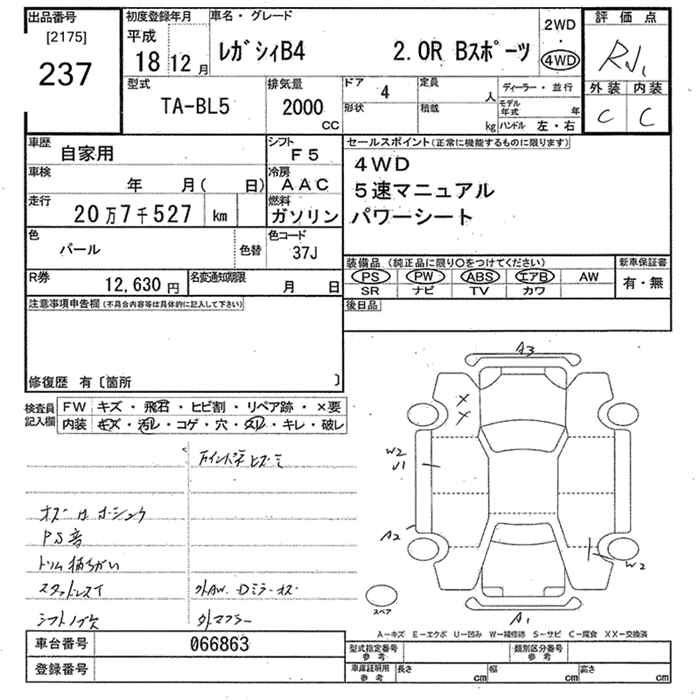 出品番号
[2175]
237
初度登録年月
平成
18 12 月
車名・グレード
レガシィB4 2.0R Bスポーツ
2WD
・
4WD
評価点
R
外装 内装
C C
型式
TA-BL5
排気量
2000
cc
ドア 4
形状
定員 人
積載 kg
ディーラー・並行
モデル年式 年
ハンドル 左・右
車歴 自家用
シフト F5
車検 年 月( 日)
冷房 AAC
走行 20万7千527 km
燃料 ガソリン
色 パール 色替
色コード 37J
R券 12,630 円
名変通知期限 月 日
セールスポイント(正常に機能するものに限ります)
4WD
5速マニュアル
パワーシート
装備品(純正品に限り○をつけてください)
PS PW ABS エアB AW
SR ナビ TV カワ
新車保証書
有・無
後日品
注意事項申告欄(不具合内容等は具体的に記入して下さい)
修復歴 有〔箇所 〕
検査員記入欄
FW キズ・飛石・ヒビ割・リペア跡・×要
内装 キズ・汚レ・コゲ・穴・スレ・キレ・破レ
PS音
スタッドレスイ
外AW
外マフラー
A3
X
X
W2
U1
A2
W2
A1
スペア
A-キズ E-エクボ U-凹み W-補修跡 S-サビ C-腐食 XX-交換済
車台番号 066863
登録番号
型式指定番号 参考
類別区分番号 参考
車庫証明用 参考
長さ cm 幅 cm 高さ cm